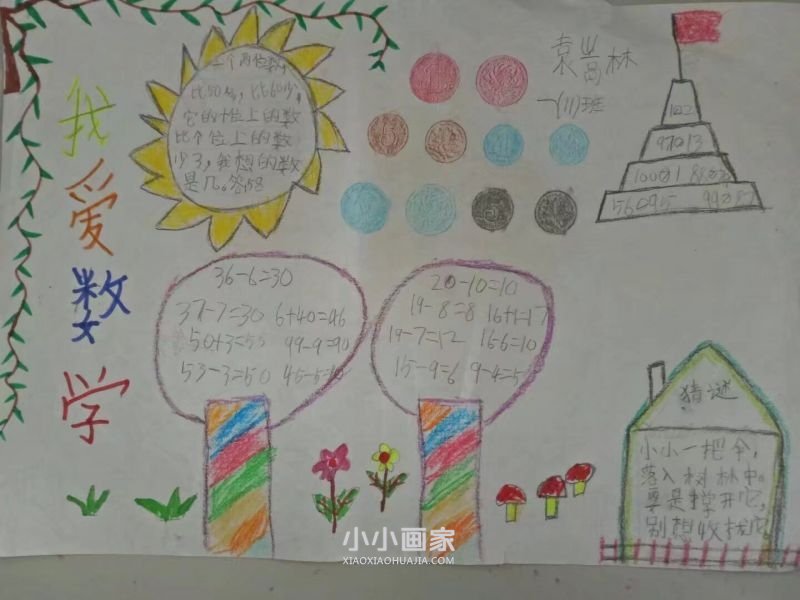 我爱数学
一个两位数,
比50多,比60少,
它的十位上的数
比个位上的数
少3,我想的数
是几。答:58
袁嵩林
一(11)班
102
97013
56095
36-6=30
37-7=30 6+40=46
50+3=53 99-9=90
53-3=50 45-5=40
20-10=10
19-8=8 16+1=17
19-7=12 16-6=10
15-9=6 9-4=5
猜谜
小小一把伞,
落入树林中。
要是撑开它,
别想收拢它
小小画家
XIAOXIAOHUAJIA.COM